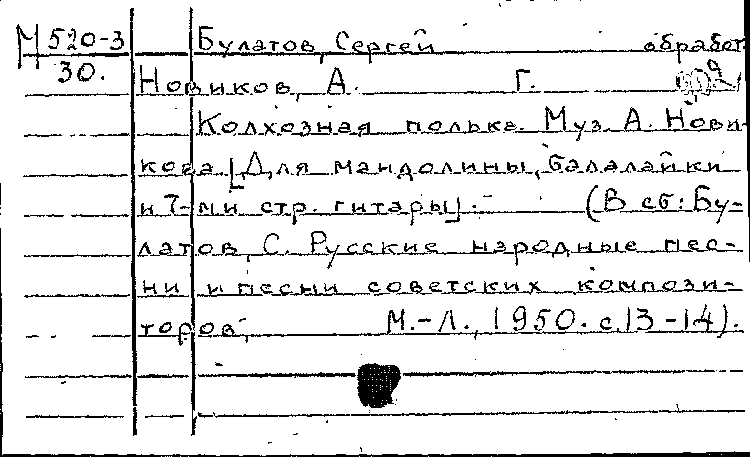 М 520-3 Булатов, Сергей обработ.
30. Новиков, А. Г.
Колхозная полька. Муз. А. Нови-
кова [Для мандолины, балалайки
и 7-ми стр. гитары]. - (В сб: Бу-
латов, С. Русские народные пес-
ни и песни советских компози-
торов, М.-Л., 1950. с. 13-14).